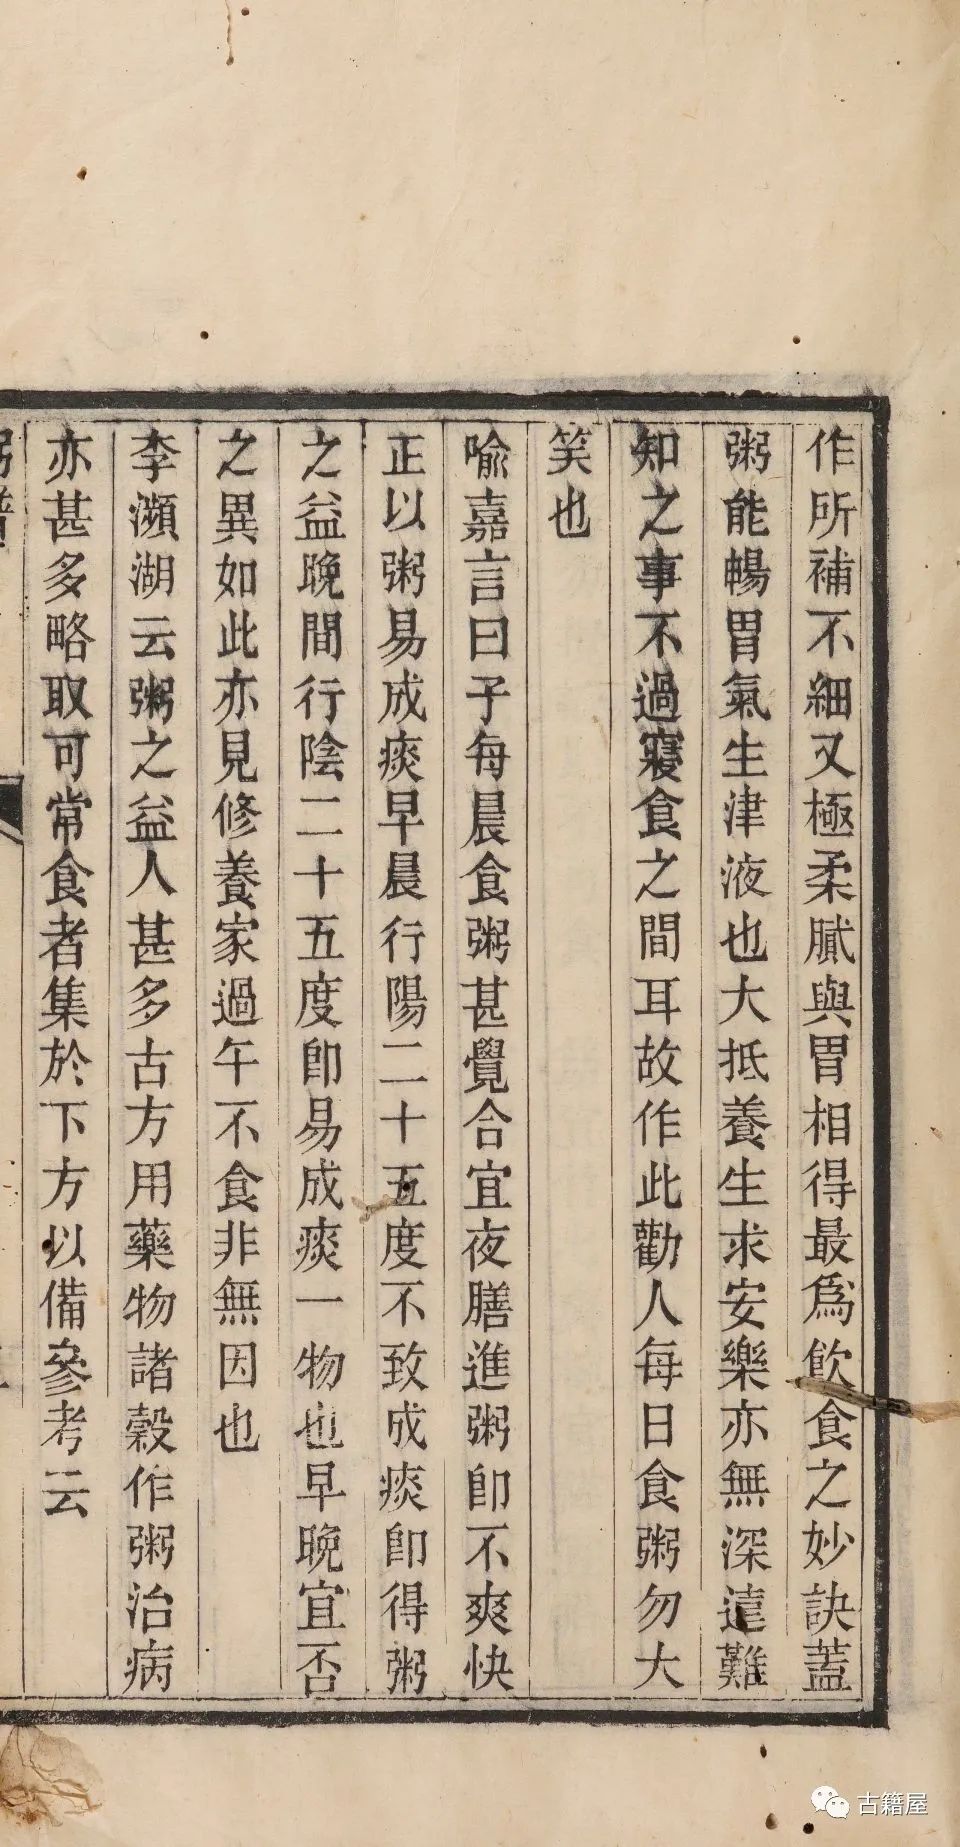 作所補不細又極柔膩與胃相得最爲飲食之妙訣蓋
粥能暢胃氣生津液也大抵養生求安樂亦無深遠難
知之事不過寢食之間耳故作此勸人每日食粥勿大
笑也
喻嘉言曰予每晨食粥甚覺合宜夜膳進粥即不爽快
正以粥易成痰早晨行陽二十五度不致成痰即得粥
之益晚間行陰二十五度即易成痰一物也早晚宜否
之異如此亦見修養家過午不食非無因也
李瀕湖云粥之益人甚多古方用藥物諸穀作粥治病
亦甚多略取可常食者集於下方以備參考云
粥譜
古籍屋